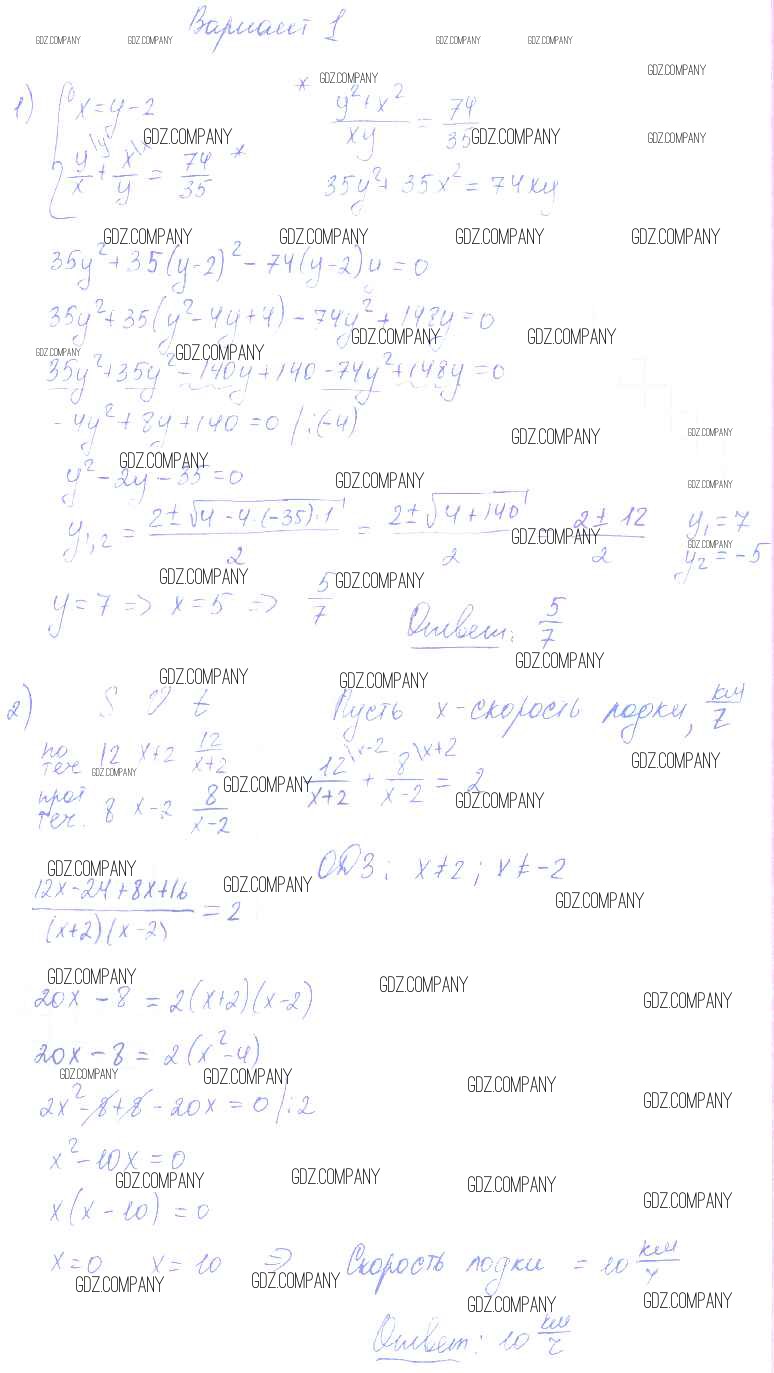 Вариант 1
GDZ.COMPANY GDZ.COMPANY GDZ.COMPANY GDZ.COMPANY
GDZ.COMPANY GDZ.COMPANY
1) { x = y - 2
* (y² + x²)/(xy) = 74/35
GDZ.COMPANY GDZ.COMPANY GDZ.COMPANY
y/x + x/y = 74/35 *
35y² + 35x² = 74xy
GDZ.COMPANY GDZ.COMPANY GDZ.COMPANY GDZ.COMPANY
35y² + 35(y-2)² - 74(y-2)y = 0
35y² + 35(y² - 4y + 4) - 74y² + 148y = 0
GDZ.COMPANY GDZ.COMPANY GDZ.COMPANY GDZ.COMPANY
35y² + 35y² - 140y + 140 - 74y² + 148y = 0
- 4y² + 8y + 140 = 0 /:(-4)
GDZ.COMPANY GDZ.COMPANY GDZ.COMPANY
y² - 2y - 35 = 0
GDZ.COMPANY GDZ.COMPANY
y₁,₂ = (2 ± √(4 - 4·(-35)·1))/2 = (2 ± √(4 + 140))/2 = (2 ± 12)/2 y₁ = 7
GDZ.COMPANY GDZ.COMPANY
y₂ = -5
GDZ.COMPANY GDZ.COMPANY
y = 7 => x = 5 => 5/7 Ответ: 5/7
GDZ.COMPANY GDZ.COMPANY GDZ.COMPANY
2) S V t Пусть x - скорость лодки, км/ч
по теч. 12 x+2 12/(x+2)
12/(x+2) \x-2 + 8/(x-2) \x+2 = 2
GDZ.COMPANY GDZ.COMPANY GDZ.COMPANY GDZ.COMPANY
прот теч. 8 x-2 8/(x-2)
ОДЗ: x≠2; x≠-2
GDZ.COMPANY GDZ.COMPANY GDZ.COMPANY
(12x - 24 + 8x + 16)/((x+2)(x-2)) = 2
GDZ.COMPANY GDZ.COMPANY GDZ.COMPANY
20x - 8 = 2(x+2)(x-2)
20x - 8 = 2(x² - 4)
GDZ.COMPANY GDZ.COMPANY GDZ.COMPANY GDZ.COMPANY
2x² - 8 + 8 - 20x = 0 /:2
x² - 10x = 0
GDZ.COMPANY GDZ.COMPANY GDZ.COMPANY GDZ.COMPANY
x(x - 10) = 0
x = 0 x = 10 => Скорость лодки = 10 км/ч
GDZ.COMPANY GDZ.COMPANY GDZ.COMPANY GDZ.COMPANY
Ответ: 10 км/ч